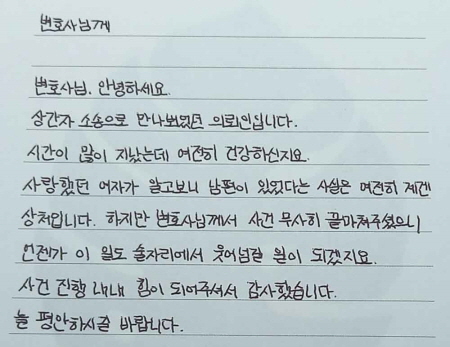 변호사님께
변호사님. 안녕하세요.
상간자 소송으로 만나뵈었던 의뢰인입니다.
시간이 많이 지났는데 여전히 건강하신지요.
사랑했던 여자가 알고보니 남편이 있었다는 사실은 여전히 제겐
상처입니다. 하지만 변호사님께서 사건 무사히 끝마쳐주셨으니
언젠가 이 일도 술자리에서 웃어넘길 일이 되겠지요.
사건 진행 내내 힘이 되어주셔서 감사했습니다.
늘 평안하시길 바랍니다.